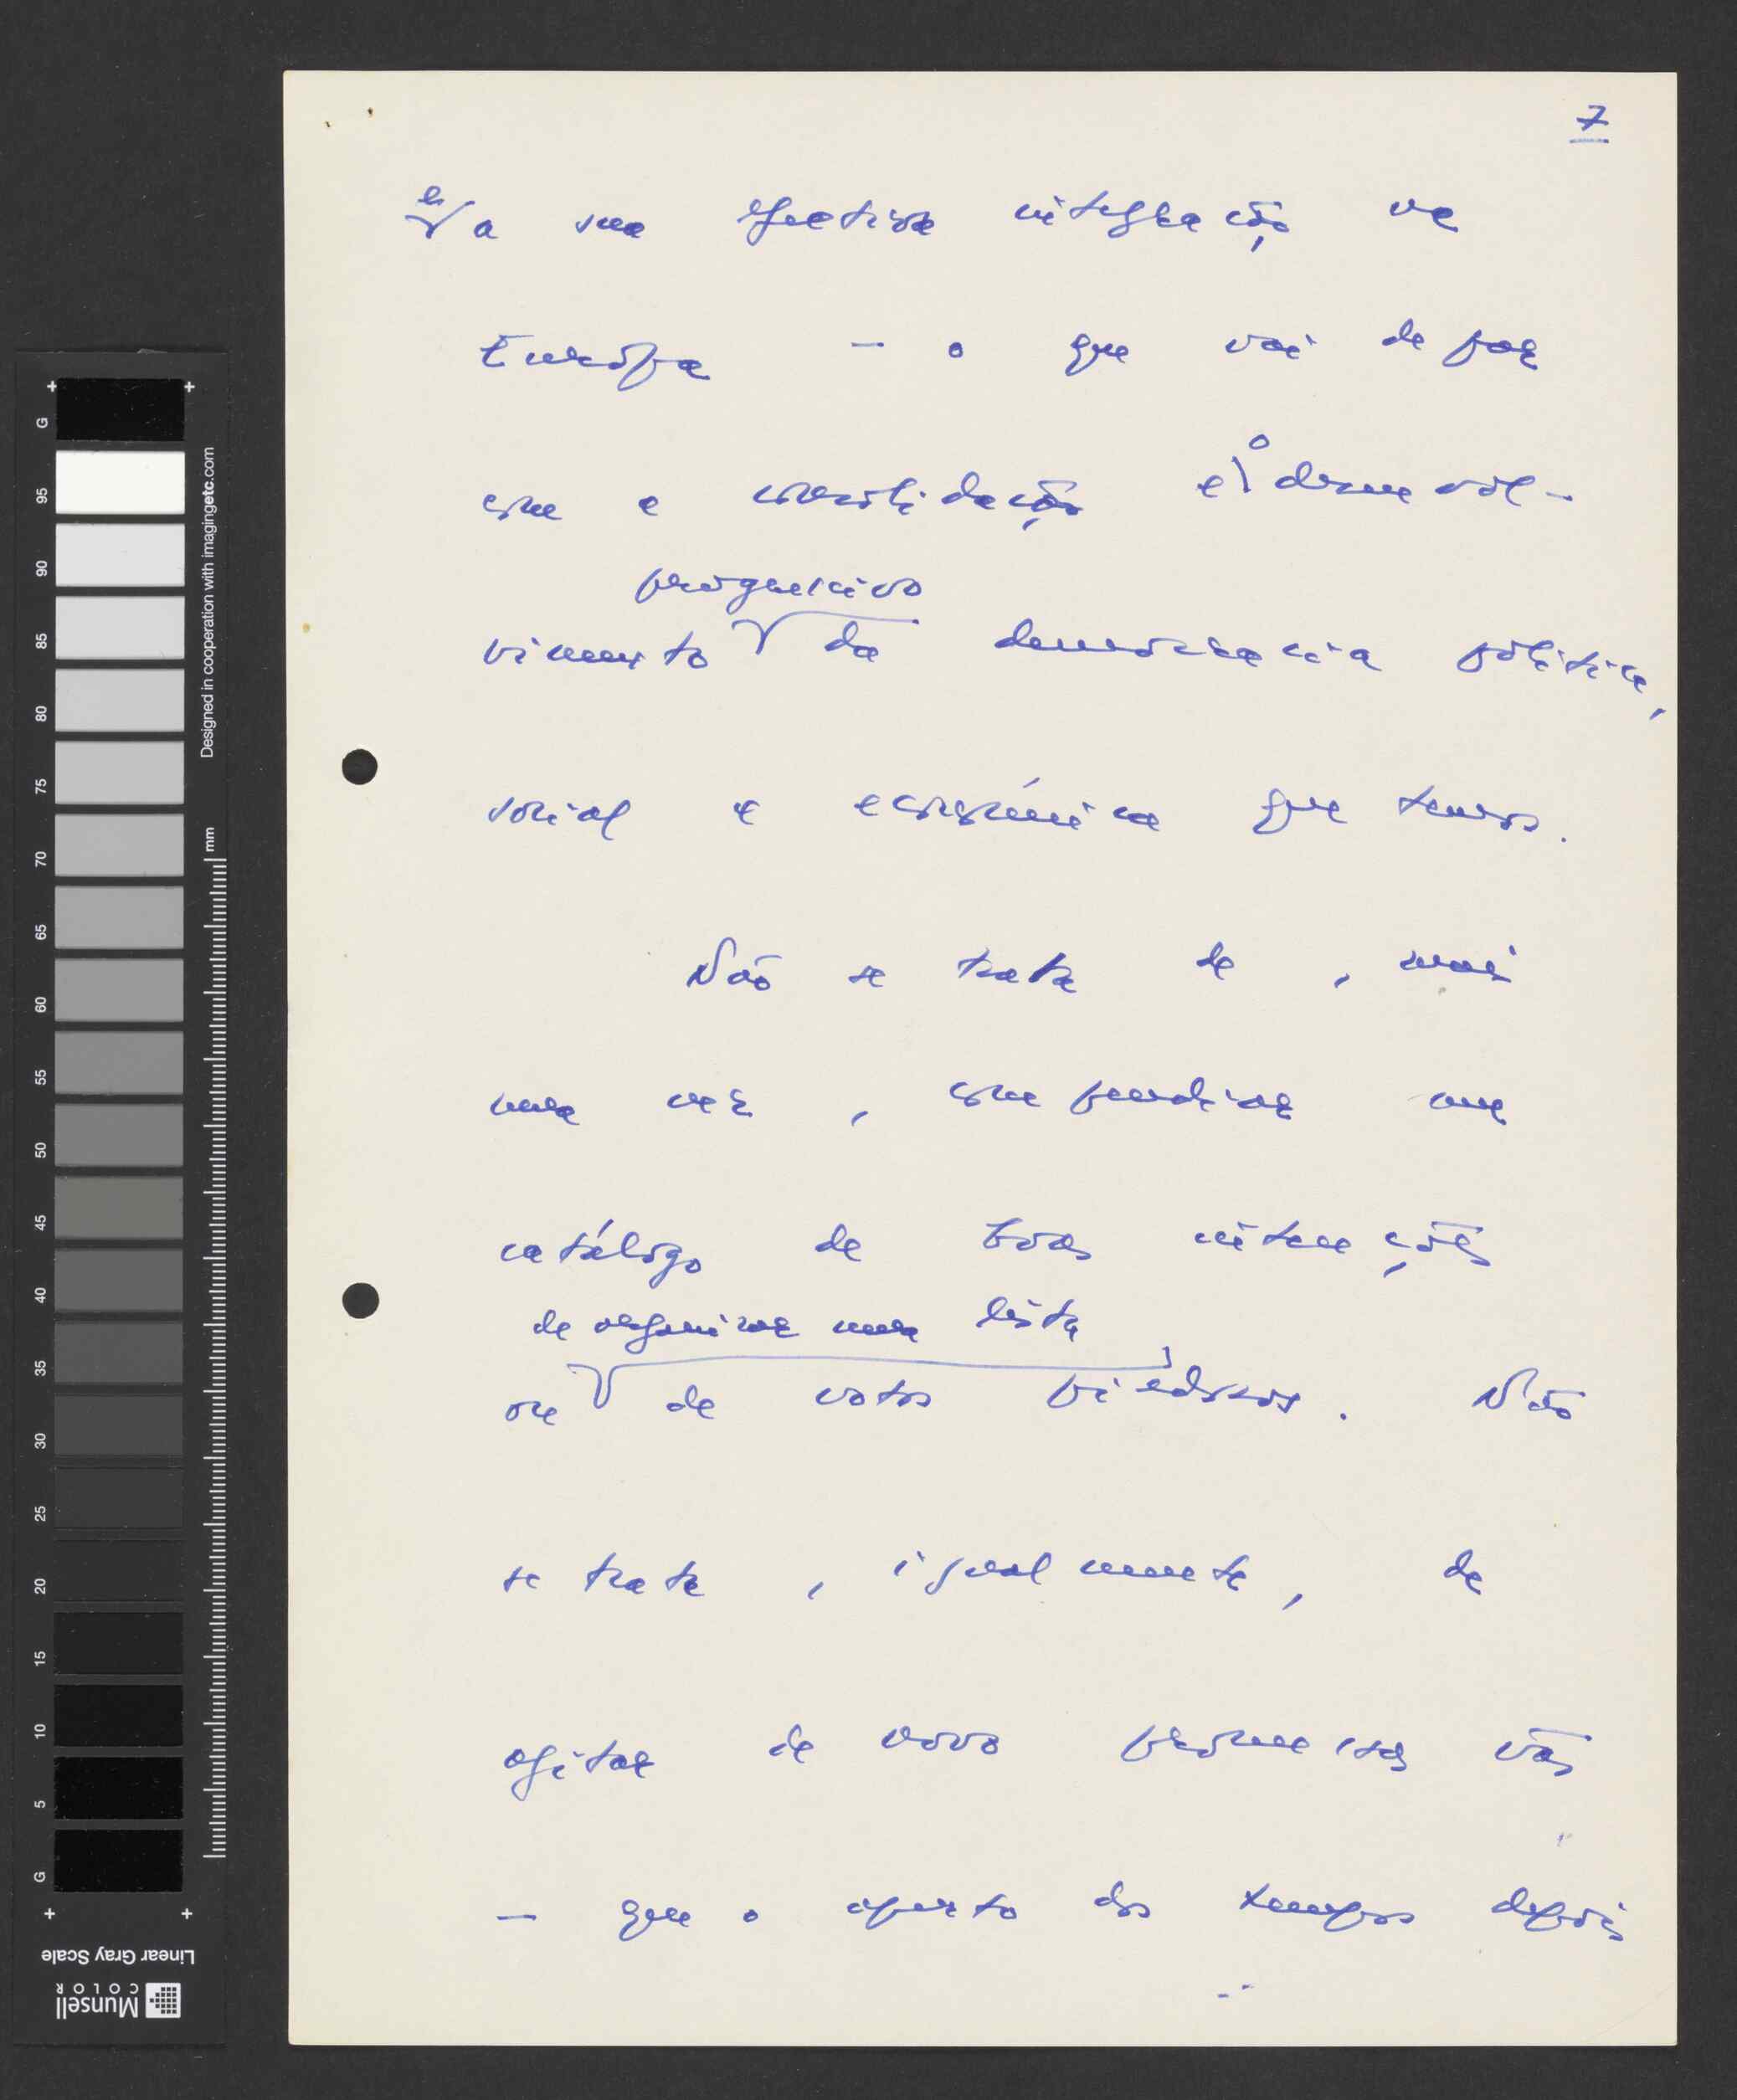 7
e a sua efectiva integração na
Europa - o que vai de par
com a consolidação e o desenvol-
progressivo
vimento da democracia política,
social e económica que temos.
Não se trata de, mais
uma vez, compendiar um
catálogo de boas intenções
de organizar uma lista
ou de votos piedosos. Não
se trata, igualmente, de
agitar de novo promessas vãs
- que o aperto dos tempos depois
G
95
90
85
80
75
70
65
60
55
50
45
40
35
30
25
20
15
10
5
G
mm
Designed in cooperation with imagingetc.com
Linear Gray Scale
Munsell
COLOR